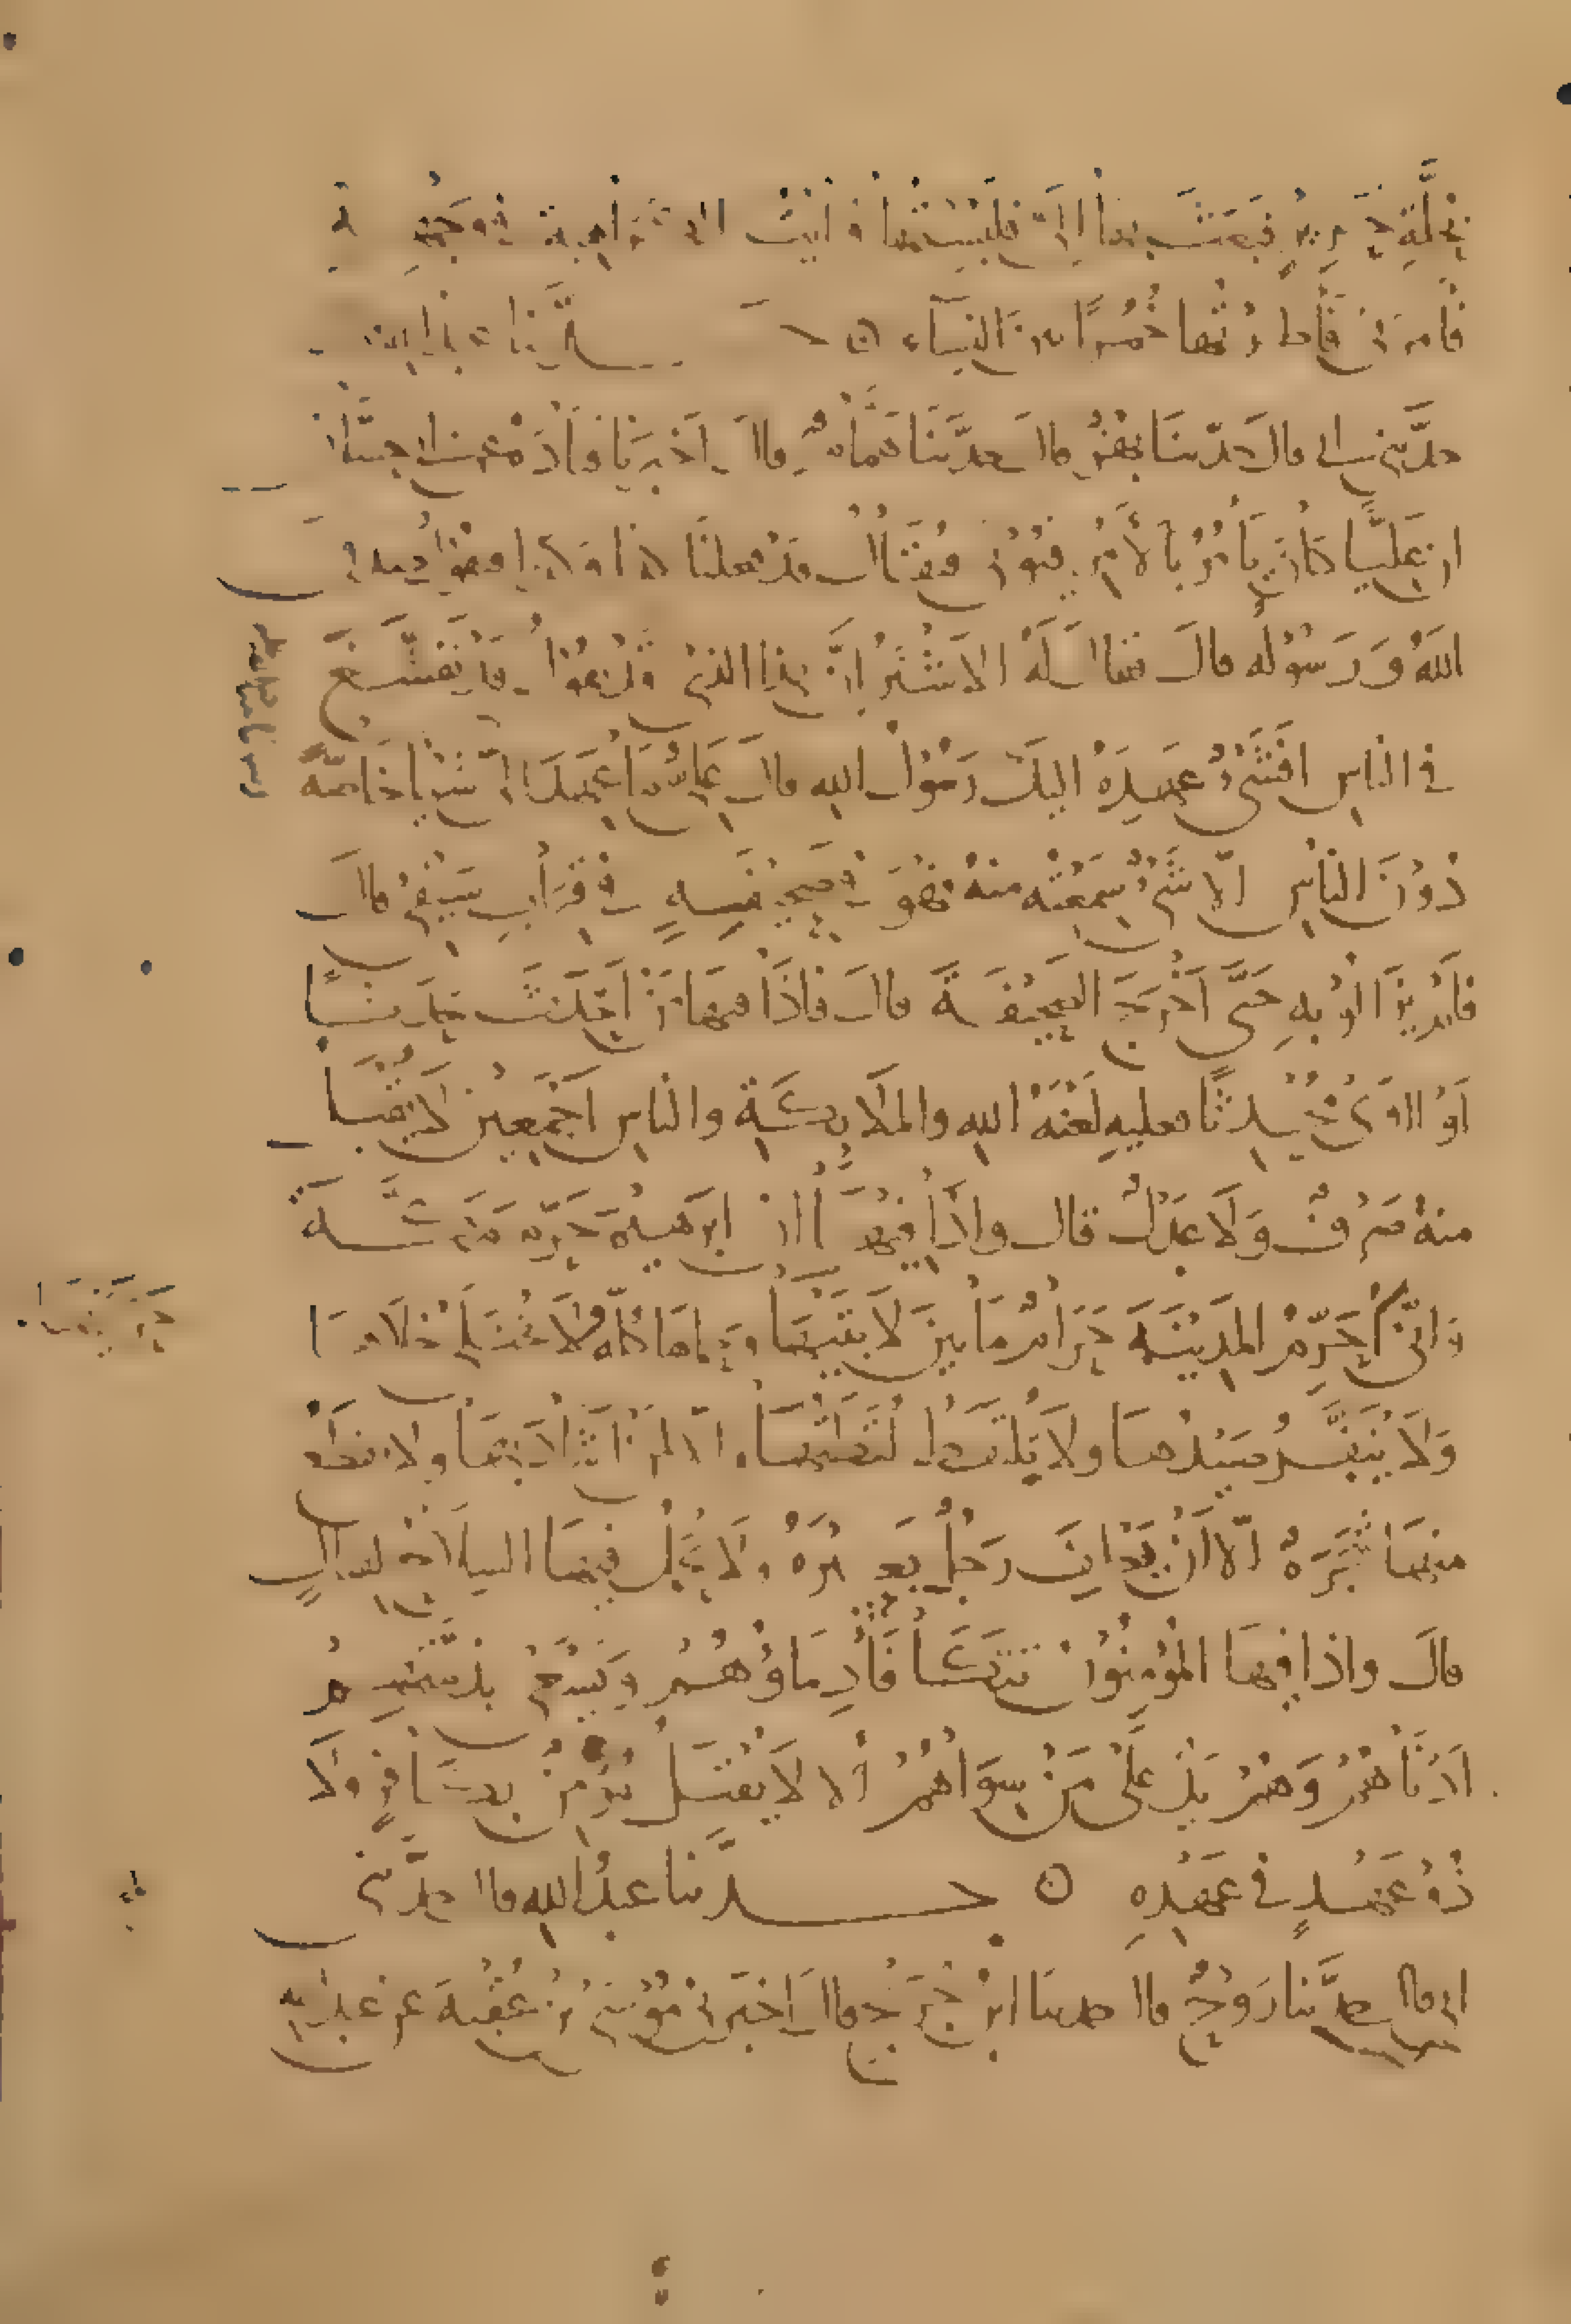 بحلة حرير فبعث بها إليّ فلبستها فرأيت الكراهية في وجهه
فأمرني فأطرتها خُمُرًا بين النساء ○ حدثنا عبد الله
حدثني أبي قال حدثنا بهز قال حدثنا همام قال أخبرنا قتادة عن أبي حسان
أن عليا كان يأمر بالأمر فيؤتى فيقال قد فعلنا كذا وكذا فيقول صدق
الله ورسوله قال فقال له الأشتر إن هذا الذي تقول قد تفشغ
في الناس أفشيء عهده إليك رسول الله قال علي ما عهد إليّ شيئا خاصة
دون الناس إلا شيء سمعته منه فهو في صحيفة في قراب سيفي قال
فلم يزالوا به حتى أخرج الصحيفة قال فإذا فيها من أحدث حدثا
أو آوى محدثا فعليه لعنة الله والملائكة والناس أجمعين لا يقبل
منه صرف ولا عدل قال وإذا فيها إن إبراهيم حرم مكة
وإني أحرم المدينة حرام ما بين حرتيها وحماها كله لا يختلى خلاها
ولا ينفر صيدها ولا يلتقط لقطتها إلا لمن أشاد بها ولا يقطع
منها شجرة إلا أن يعلف رجل بعيره ولا يحمل فيها السلاح لقتال
قال وإذا فيها المؤمنون تتكافأ دماؤهم ويسعى بذمتهم
أدناهم وهم يد على من سواهم ألا لا يقتل مؤمن بكافر ولا
ذو عهد في عهده ○ حدثنا عبد الله قال حدثني
أبي قال حدثنا روح قال حدثنا ابن جريج قال أخبرني موسى بن عقبة عن عبد الله